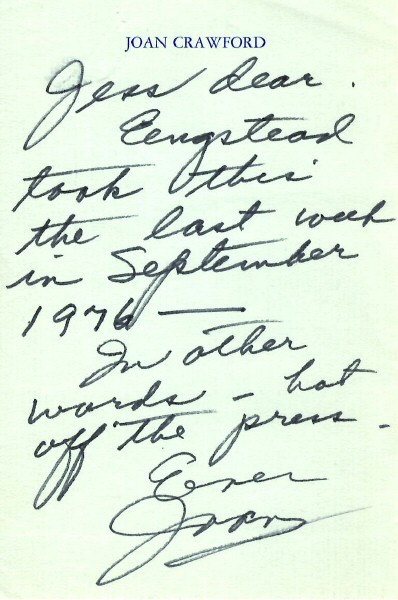 JOAN CRAWFORD
Jess dear.
Eengstead
took this
the last week
in September
1976 —
In other
words - hot
off the press -
Ever
Joan